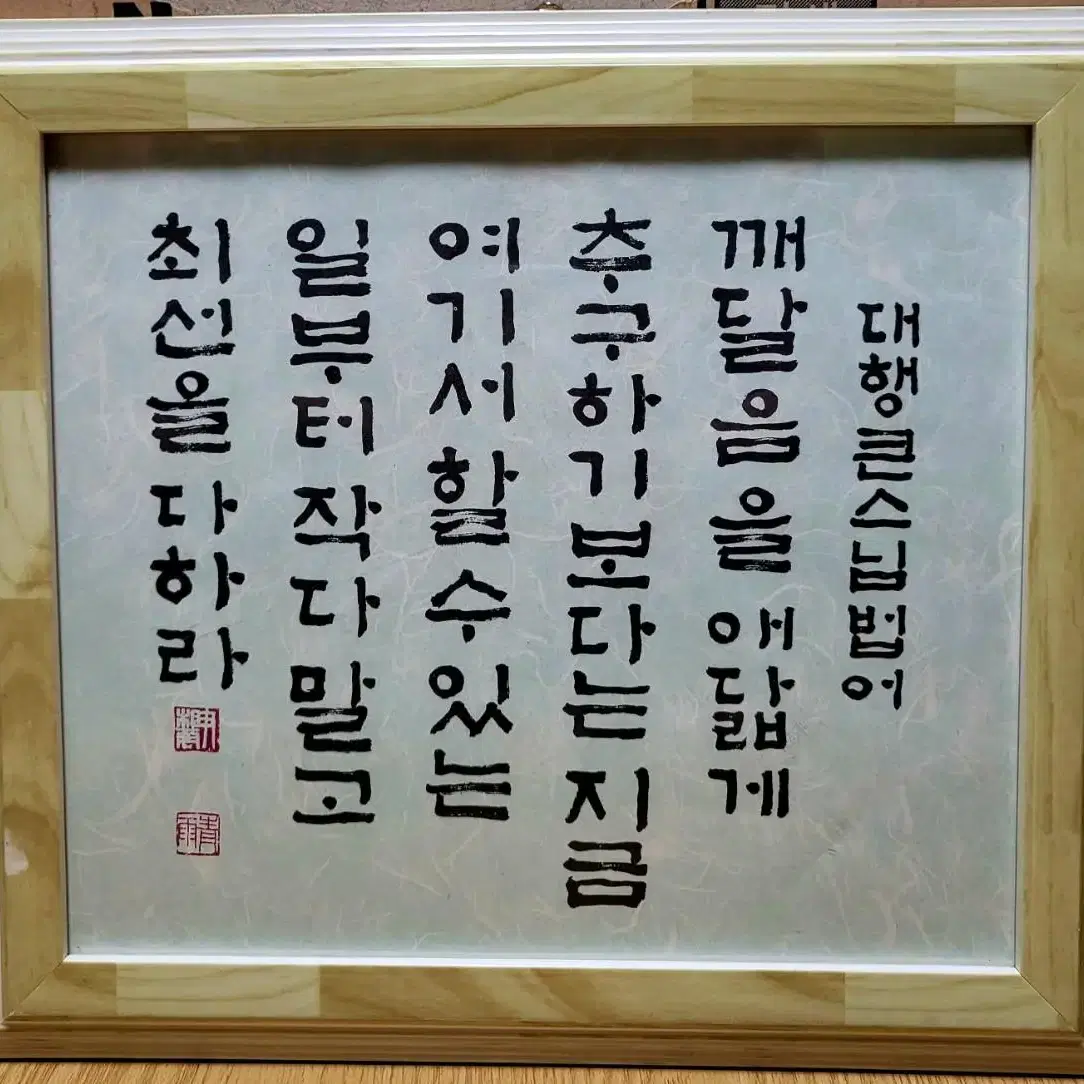 대행큰스님법어
깨달음을 애닯게
추구하기보다는 지금
여기서할 수 있는
일부터 작다 말고
최선을 다하라